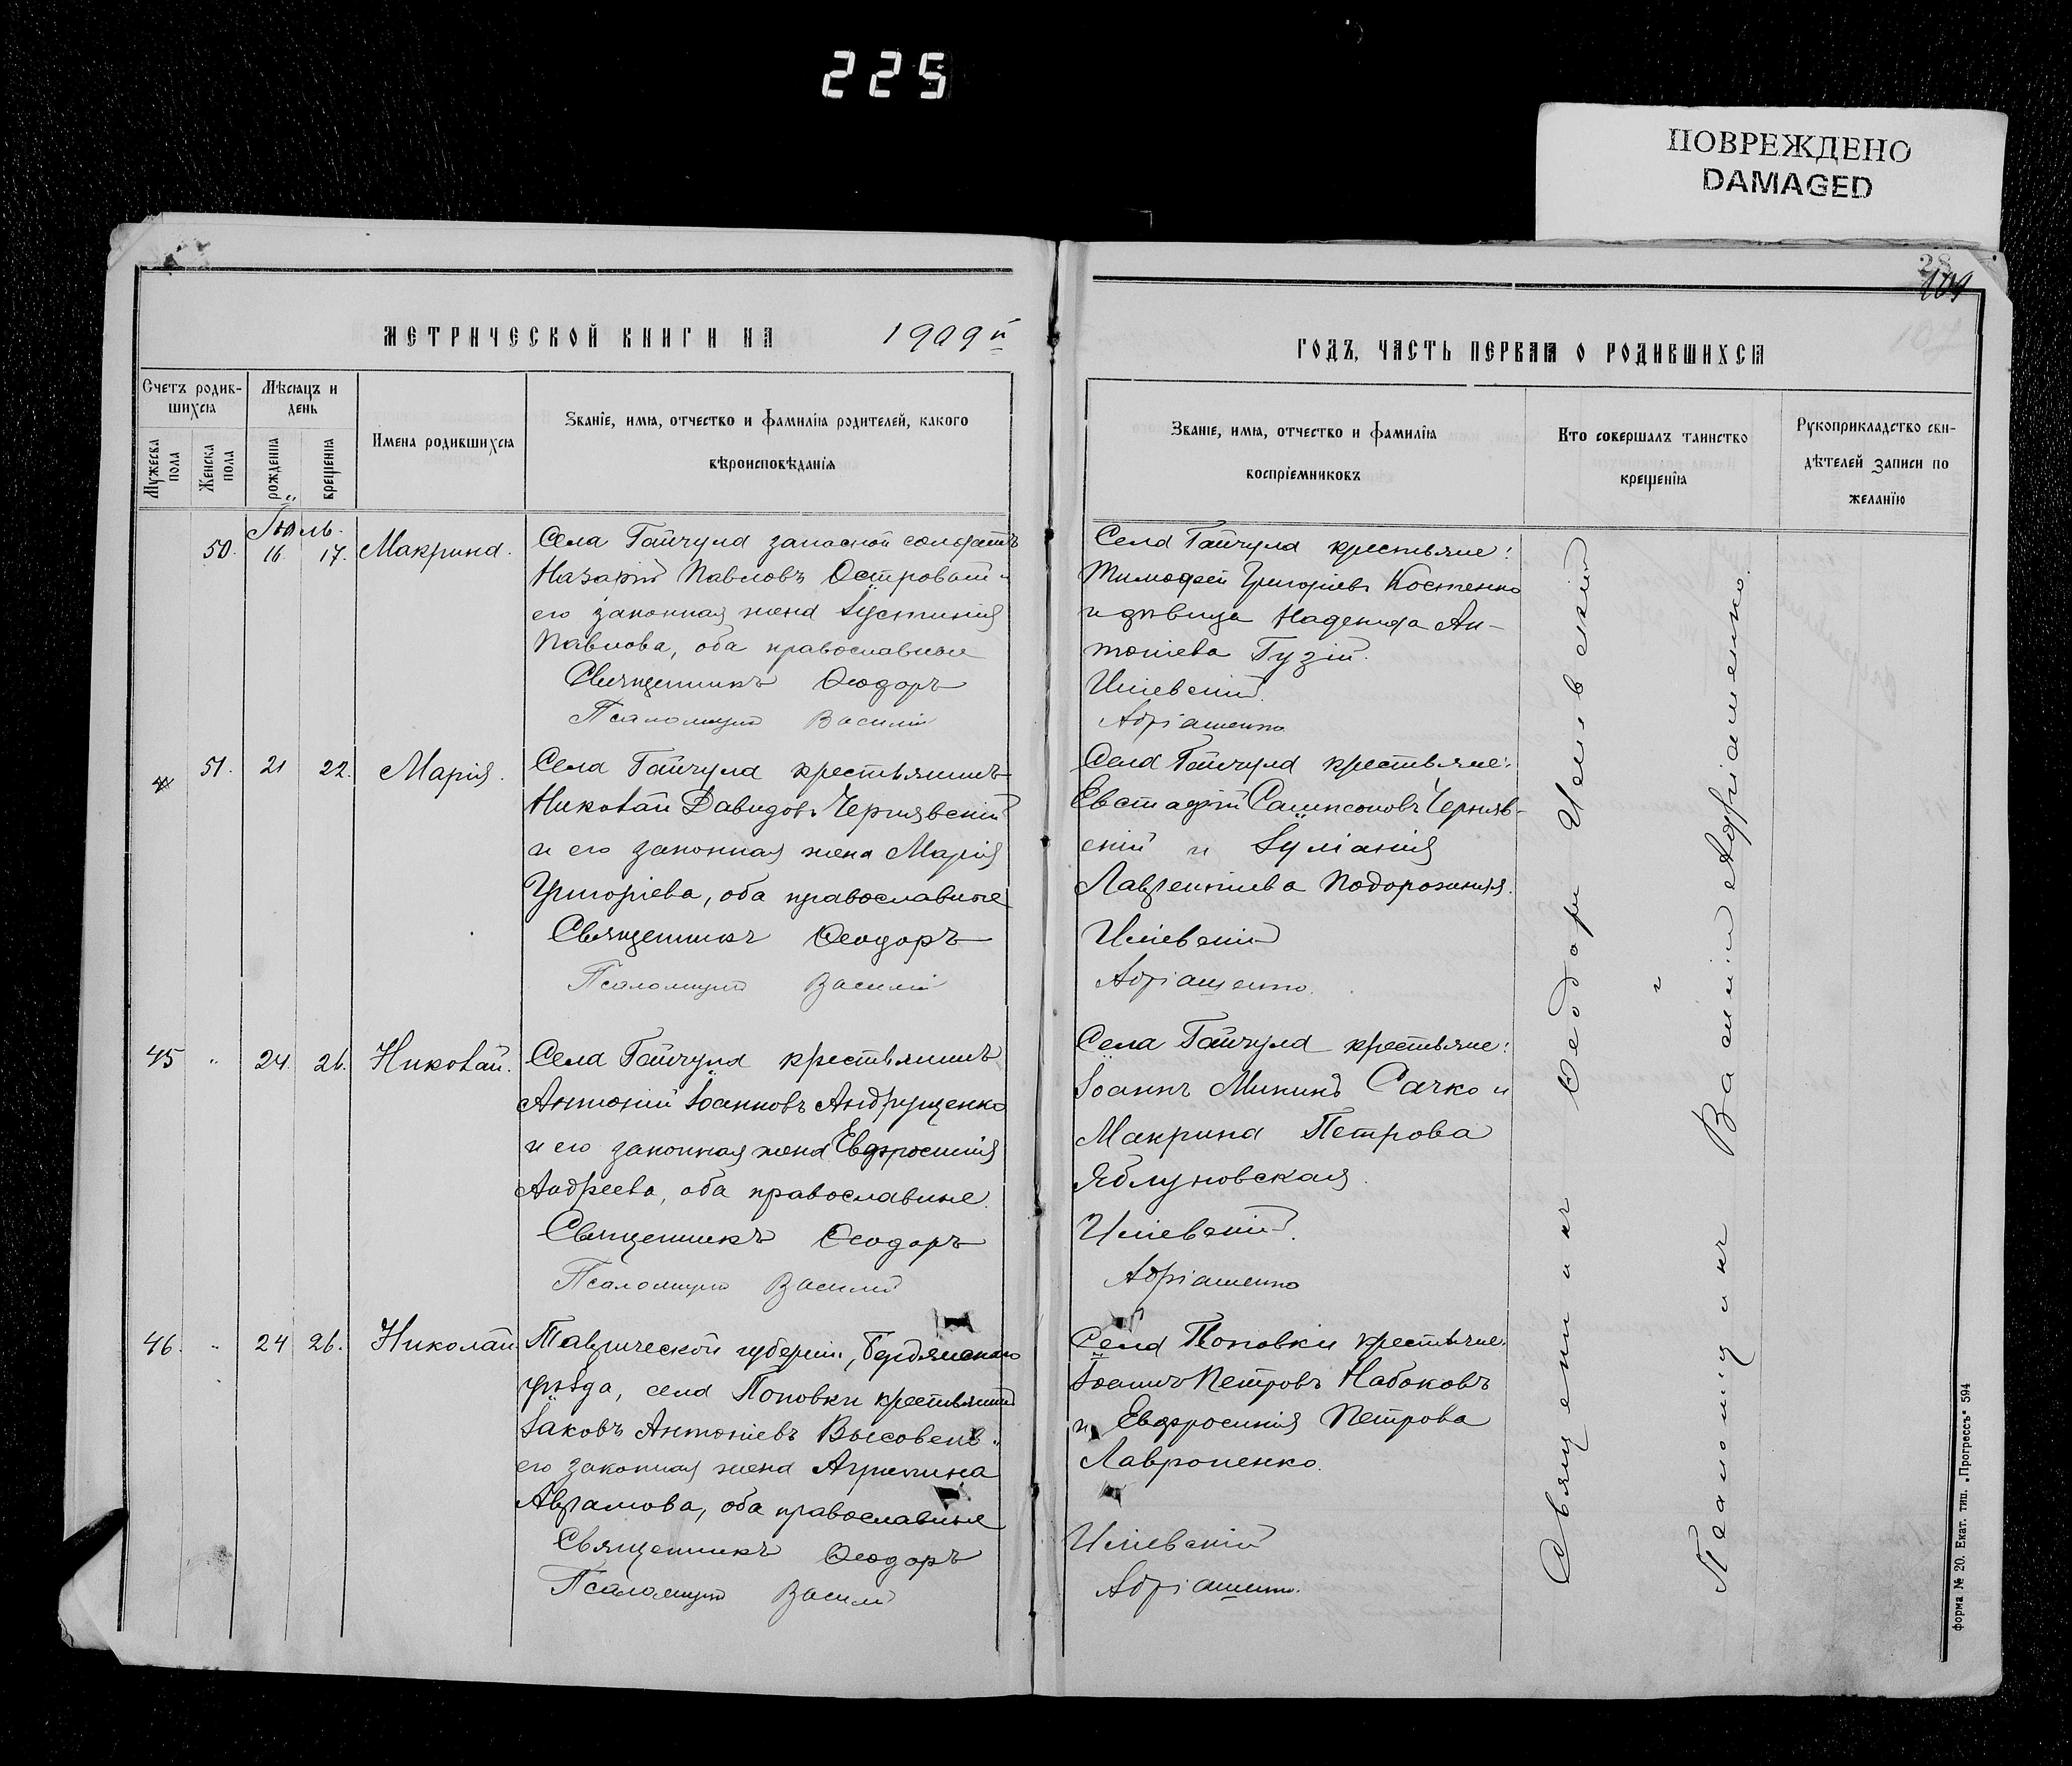 225
ПОВРЕЖДЕНО
DAMAGED
МЕТРИЧЕСКОЙ КНИГИ НА 1909й
Счетъ родившихся
Мѣсяцъ и день
Мужеска пола
Женска пола
рожденія
крещенія
Имена родившихся
Званіе, имя, отчество и фамилія родителей, какого
вѣроисповѣданія
Іюль.
50. 16. 17. Макрина.
Села Гайчула запасной солдатъ
Назарій Павловъ Островой и
его законная жена Іустинія
Павлова, оба православные
Священникъ Ѳеодоръ
Псаломщикъ Василій
51. 21 22. Марія.
Села Гайчула крестьянинъ
Николай Давидовъ Чернявскій
и его законная жена Марія
Григоріева, оба православные
Священникъ Ѳеодоръ
Псаломщикъ Василій
45 " 24. 26. Николай.
Села Гайчула крестьянинъ
Антоній Іоанновъ Андрущенко
и его законная жена Евфросинія
Андреева, оба православные.
Священникъ Ѳеодоръ
Псаломщикъ Василій
46. " 24 26. Николай
Таврической губерніи, Бердянскаго
уѣзда, села Поповки крестьянинъ
Іаковъ Антоніевъ
его законная жена Агрипина
Аврамова, оба православные
Священникъ Ѳеодоръ
Псаломщикъ Василій
28
109
ГОДЪ, ЧАСТЬ ПЕРВАЯ О РОДИВШИХСЯ
Званіе, имя, отчество и фамилія
воспріемниковъ
Кто совершалъ таинство
крещенія
Рукоприкладство сви-
дѣтелей записи по
желанію
Села Гайчула крестьяне:
Тимофей Григоріевъ Костенко
и дѣвица Надежда Ан-
тоніева Гузій.
Адріашенко
Села Гайчула крестьяне:
Евстафій Сампсоновъ Черняв-
скій и Іуліанія
Лаврентіева Подорожняя.
Адріашенко.
Села Гайчула крестьяне:
Іоаннъ Микинъ Сачко и
Макрина Петрова
Яблуновская.
Адріашенко
Села Поповки крестьяне:
Іоаннъ Петровъ Набоковъ
и Евфросинія Петрова
Лавроненко.
Адріашенко.
Священникъ Ѳеодоръ
и
Псаломщикъ Василій Адріашенко.
форма № 20. Екат. тип. „Прогрессъ“ 594